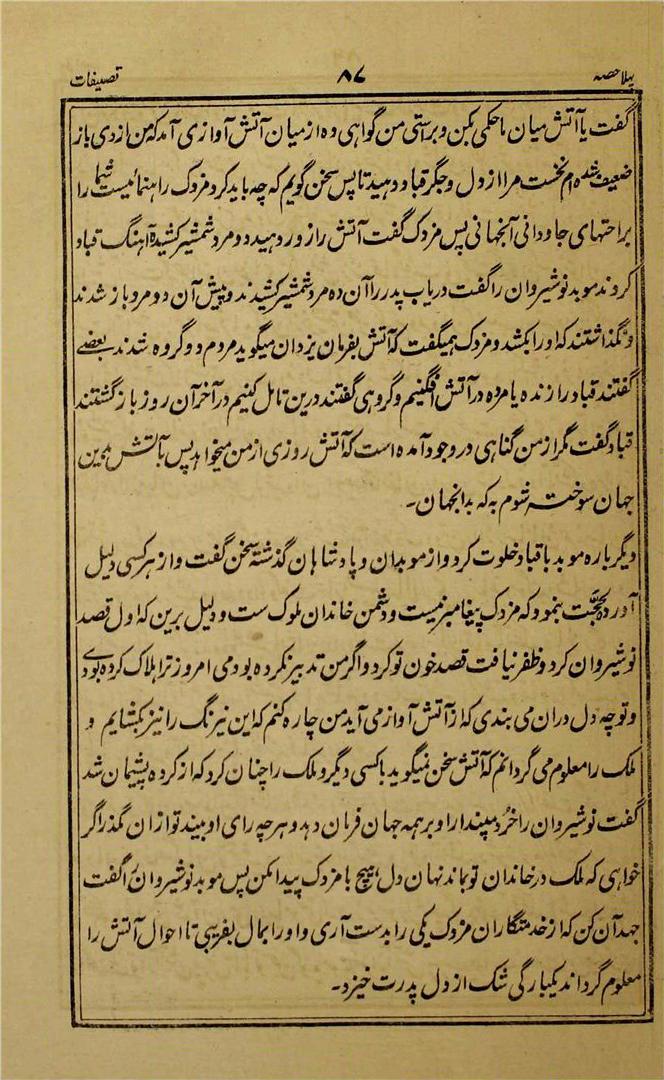 پہلا حصہ ۸۷ تصیفات
گفت یا آتش میان ما حکمی بکن و براستی من گواهی ده از میان آتش آوازی آمد که من از دی باز
ضعیف شده‌ام نخست مرا از دل و جگر قباد دهید تا پس سخن گویم که چه باید کرد مزدک راهنمائیست شما را
براحتهای جاودانی آنجهانی پس مزدک گفت آتش را زور دهید دو مرد شمشیر کشیده آهنگ قباد
کردند موبد نوشیروان را گفت دریاب پدر را آن ده مرد شمشیر کشیدند و پیش آن دو مرد باز شدند
و نگذاشتند که او را بکشد و مزدک همیگفت که آتش بفرمان یزدان میگوید مردم دو گروه شدند بعضے
گفتند قباد را زنده یا مرده در آتش افگنیم و گروهی گفتند درین تامل کنیم در آخر آن روز باز گشتند
قباد گفت مگر از من گناهی در وجود آمده است که آتش روزی از من میخواهد پس بآتش بدین
جهان سوخته شوم به که بدانجهان۔
دیگر باره موبد با قباد خلوت کرد و از موبدان و پادشاهان گذشته سخن گفت و از هر کسی دلیل
آورده حجّت بنمود که مزدک پیغامبر نیست و دشمن خاندان ملوک ست و دلیل برین که اول قصد
نوشیروان کرد و ظفر نیافت قصد خون تو کرد و اگر من تدبیر نکرده بودمی امروز ترا هلاک کرده بودے
و تو چه دل دران می بندی که از آتش آواز می آید من چاره کنم که این نیرنگ را نیز بکشایم و
ملک را معلوم می گردانم که آتش سخن نمیگوید با کسی دیگر و ملک را چنان کرد که از کرده پشیمان شد
گفت نوشیروان را خُرد مپندار او بر همه جهان فرمان دهد و هر چه رای او بیند تو ازان مگذر اگر
خواهی که ملک در خاندان تو بماند نهان دل هیچ با مزدک پیدا مکن پس موبد نوشیروان را گفت
جهد آن کن که از خدمتگاران مزدک یکی را بدست آری و او را بمال بفریبی تا احوال آتش را
معلوم گرداند یکبارگی شک از دل پدرت خیزد۔